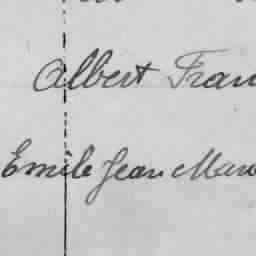 Albert Fran
Emile Jean Mar